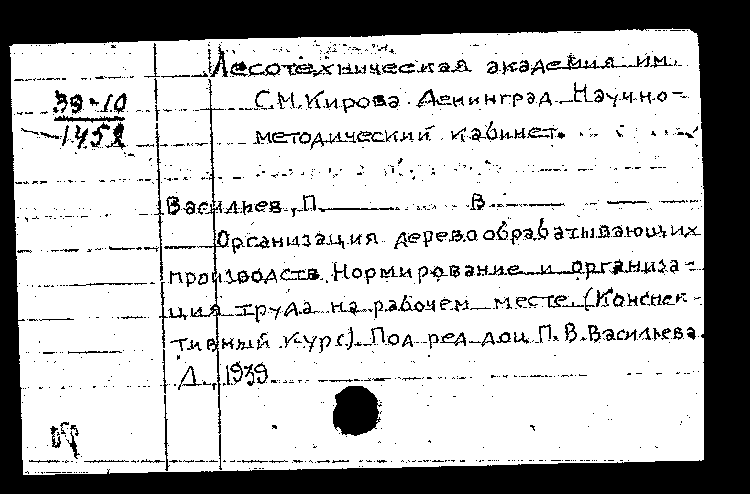 Лесотехническая академия им.
39-10
1452
С.М.Кирова. Ленинград. Научно-
методический кабинет.
Васильев, П. В.
Организация деревообрабатывающих
производств. Нормирование и организа-
ция труда на рабочем месте. (Конспек-
тивный курс). Под ред. доц. П.В.Васильева.
Л., 1939.